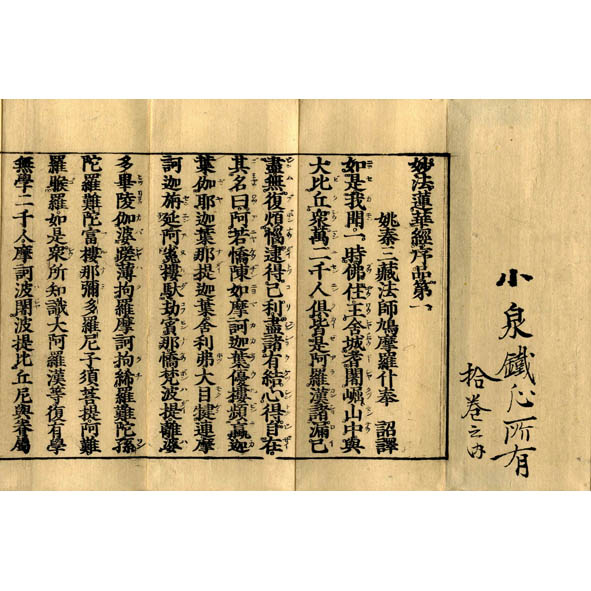 小泉鐵心所有
拾巻之内
妙法蓮華經序品第一
姚秦三藏法師鳩摩羅什奉 詔譯
如是我聞一時佛住王舍城耆闍崛山中與
大比丘衆萬二千人俱皆是阿羅漢諸漏已
盡無復煩惱逮得己利盡諸有結心得自在
其名曰阿若憍陳如摩訶迦葉優樓頻蠃迦
葉伽耶迦葉那提迦葉舍利弗大目犍連摩
訶迦旃延阿㝹樓馱劫賓那憍梵波提離婆
多畢陵伽婆蹉薄拘羅摩訶拘絺羅難陀孫
陀羅難陀富樓那彌多羅尼子須菩提阿難
羅睺羅如是衆所知識大阿羅漢等復有學
無學二千人摩訶波闍波提比丘尼與眷屬